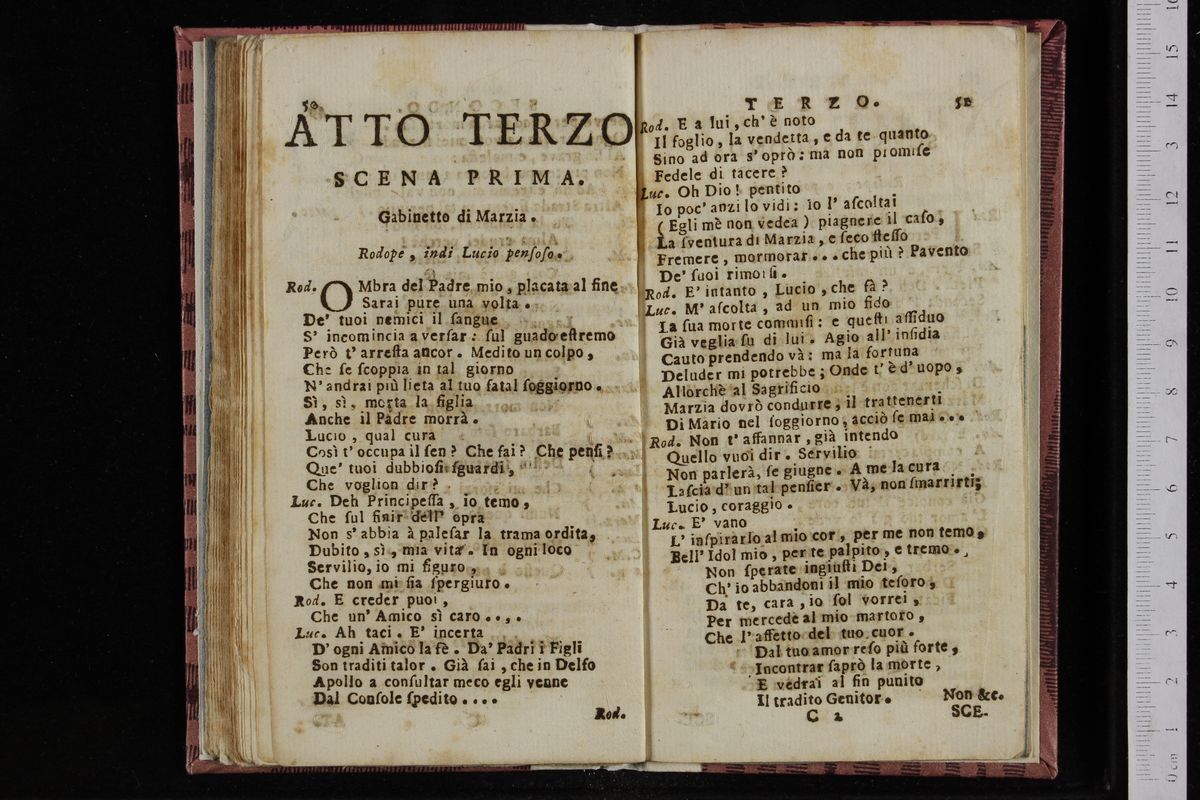 50
ATTO TERZO
SCENA PRIMA.
Gabinetto di Marzia.
Rodope, indi Lucio penſoſo.
Rod. OMbra del Padre mio, placata al fine
Sarai pure una volta.
De' tuoi nemici il ſangue
S' incomincia a verſar: ſul guado eſtremo
Però t' arreſta ancor. Medito un colpo,
Che ſe ſcoppia in tal giorno
N' andrai più lieta al tuo fatal ſoggiorno.
Sì, sì, morta la figlia
Anche il Padre morrà.
Lucio, qual cura
Così t' occupa il ſen? Che fai? Che penſi?
Que' tuoi dubbioſi ſguardi,
Che voglion dir?
Luc. Deh Principeſſa, io temo,
Che ſul finir dell' opra
Non s' abbia à paleſar la trama ordita,
Dubito, sì, mia vita. In ogni loco
Servilio, io mi figuro,
Che non mi ſia ſpergiuro.
Rod. E creder puoi,
Che un' Amico sì caro....
Luc. Ah taci. E' incerta
D' ogni Amico la fè. Da' Padri i Figli
Son traditi talor. Già ſai, che in Delfo
Apollo a conſultar meco egli venne
Dal Conſole ſpedito....
Rod.
TERZO. 51
Rod. E a lui, ch' è noto
Il foglio, la vendetta, e da te quanto
Sino ad ora s' oprò: ma non promiſe
Fedele di tacere?
Luc. Oh Dio! pentito
Io poc' anzi lo vidi: io l' aſcoltai
(Egli mè non vedea) piagnere il caſo,
La ſventura di Marzia, e ſeco ſteſſo
Fremere, mormorar... che più? Pavento
De' ſuoi rimorſi.
Rod. E' intanto, Lucio, che fà?
Luc. M' aſcolta, ad un mio fido
La ſua morte commiſi: e queſti aſſiduo
Già veglia ſu di lui. Agio all' inſidia
Cauto prendendo và: ma la fortuna
Deluder mi potrebbe; Onde t' è d' uopo,
Allorchè al Sagrificio
Marzia dovrò condurre, il trattenerti
Di Mario nel ſoggiorno, acciò ſe mai...
Rod. Non t' affannar, già intendo
Quello vuoi dir. Servilio
Non parlerà, ſe giugne. A me la cura
Laſcia d' un tal penſier. Và, non ſmarrirti;
Lucio, coraggio.
Luc. E' vano
L' inſpirarlo al mio cor, per me non temo,
Bell' Idol mio, per te palpito, e tremo.
Non ſperate ingiuſti Dei,
Ch' io abbandoni il mio teſoro,
Da te, cara, io ſol vorrei,
Per mercede al mio martoro,
Che l' affetto del tuo cuor.
Dal tuo amor reſo più forte,
Incontrar ſaprò la morte,
E vedrai al fin punito
Il tradito Genitor. Non &c.
C 2 SCE-